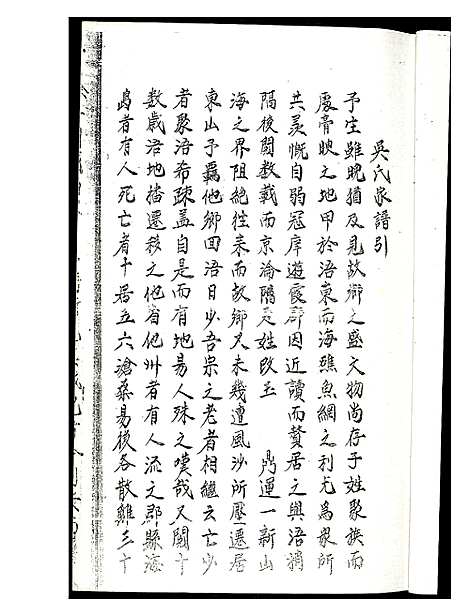 吳氏家譜引
予生雖晚猶及見故鄉之盛文物尚存子姓聚族而
處膏腴之地甲於浯東而海礁魚網之利尤為衆所
共羨慨自弱冠庠遊霞郡因近讀而贅居之與浯稍
隔後閱數載而京淪陷是姓改玉 鼎運一新山
海之界阻絕往來而故鄉又未幾遭風沙所壓遷居
東山予羈他鄉回浯日少吾宗之老者相繼云亡少
者聚浯希疎蓋自是而有地易人殊之嘆哉又閱十
數歲浯地播遷移之他省他州者有人流之郡縣海
島者有人死亡者十居五六滄桑易後各散雞三十